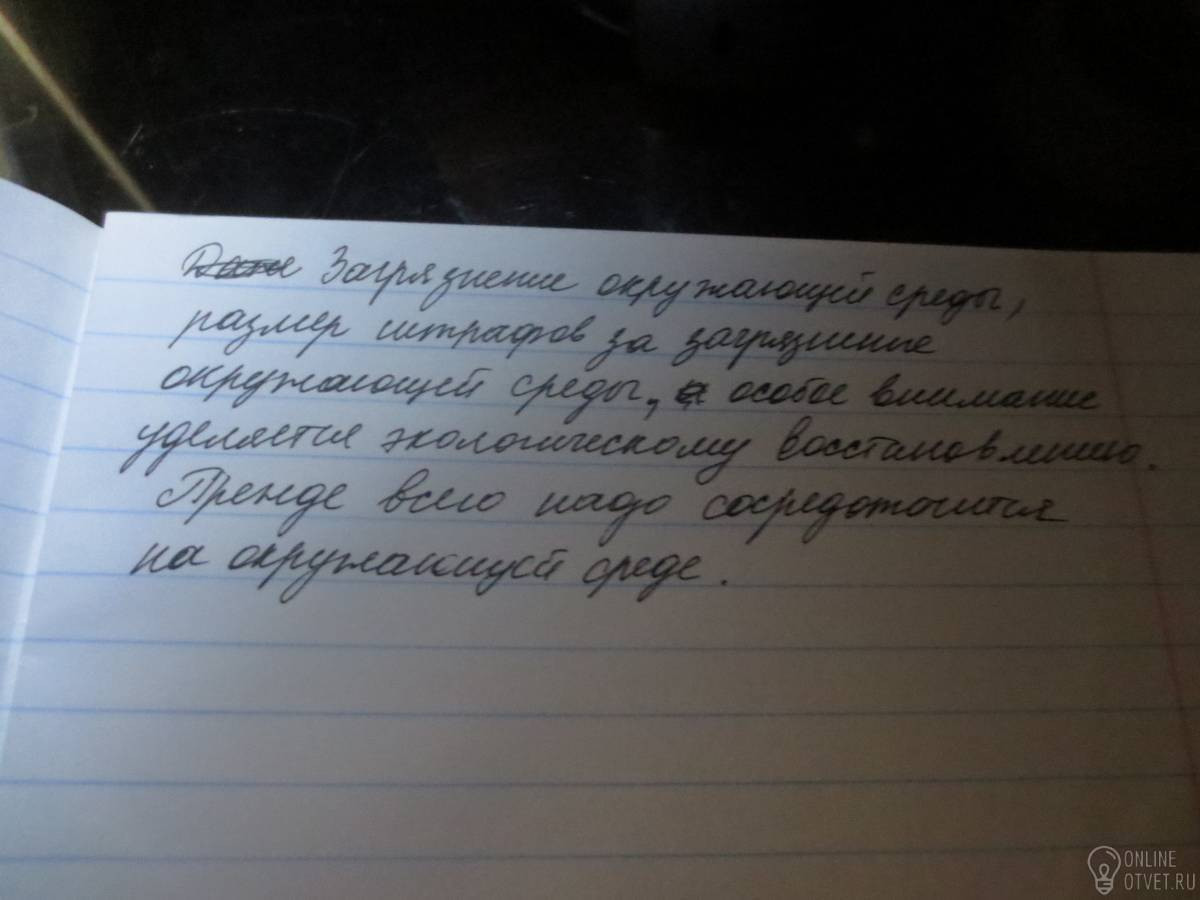 Загрязнение окружающей среды,
размер штрафов за загрязнение
окружающей среды, особое внимание
уделяется экологическому восстановлению.
Прежде всего надо сосредоточится
на окружающей среде.
ONLINE
OTVET.RU